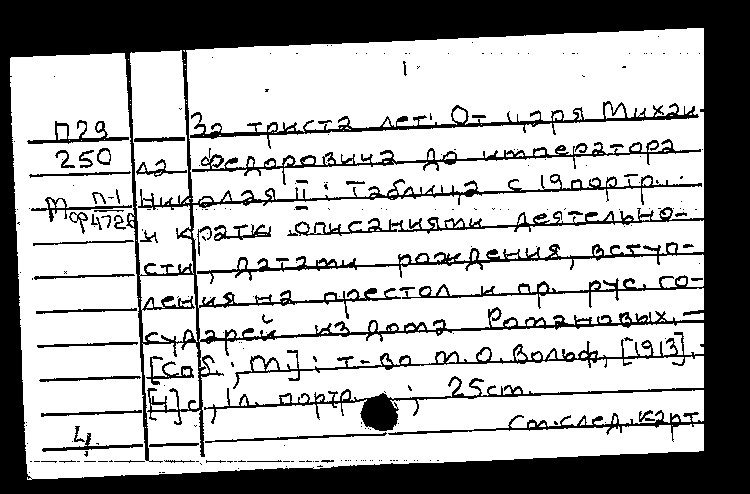 1
П29 За триста лет: От царя Михаи-
250 ла Федоровича до императора
М п-1 Николая II : Таблица с 19 портр..
ор4726 и кратк .описаниями деятельно-
сти, датами рождения, вступ-
ления на престол и пр. рус. го-
сударей из дома Романовых. —
[Спб. ; М.] : т-во М.О.Вольф, [1913]. -
[4]с, 1л. портр. ; 25см.
4 См.след.карт.